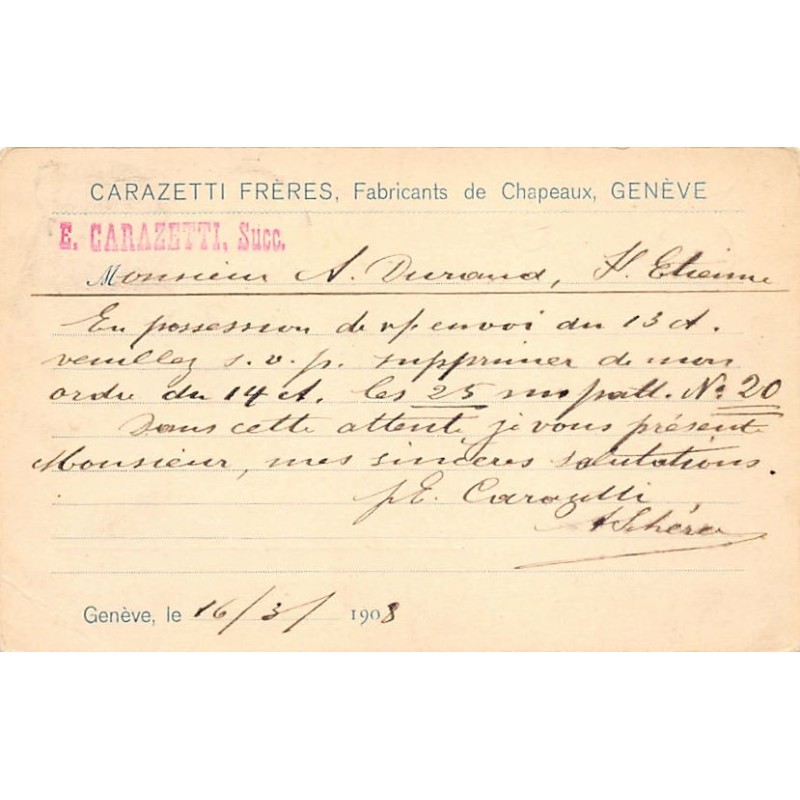 CARAZETTI FRÈRES, Fabricants de Chapeaux, GENÈVE
E. CARAZETTI, Succ.
Monsieur A. Durand, St. Etienne
En possession de v/ envoi du 13 ct.
veuillez s. v. p. supprimer de mon
ordre du 14 ct. les 25 m patt. No 20
Dans cette attente je vous présente
Monsieur, mes sincères salutations.
p E. Carazetti
A Schérer
Genève, le 16/3/ 1908